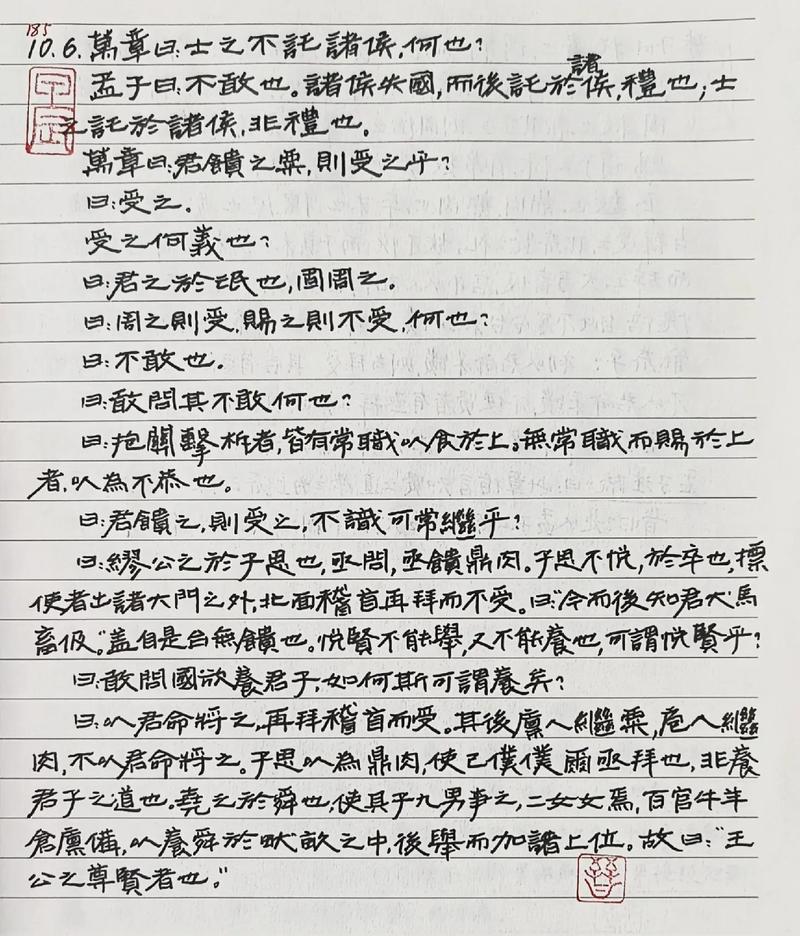 185
10.6. 萬章曰:士之不託諸侯,何也?
孟子曰:不敢也。諸侯失國,而後託於諸侯,禮也;士
之託於諸侯,非禮也。
萬章曰:君餽之粟,則受之乎?
曰:受之。
受之何義也?
曰:君之於氓也,固周之。
曰:周之則受,賜之則不受,何也?
曰:不敢也。
曰:敢問其不敢何也?
曰:抱關擊柝者,皆有常職以食於上。無常職而賜於上
者,以為不恭也。
曰:君餽之,則受之,不識可常繼乎?
曰:繆公之於子思也,亟問,亟餽鼎肉。子思不悅,於卒也,摽
使者出諸大門之外,北面稽首再拜而不受。曰:“今而後知君犬馬
畜伋。”蓋自是台無餽也。悅賢不能舉,又不能養也,可謂悅賢乎?
曰:敢問國欲養君子,如何斯可謂養矣?
曰:以君命將之,再拜稽首而受。其後廩人繼粟,庖人繼
肉,不以君命將之。子思以為鼎肉,使己僕僕爾亟拜也,非養
君子之道也。堯之於舜也,使其子九男事之,二女女焉,百官牛羊
倉廩備,以養舜於畎畝之中,後舉而加諸上位。故曰:“王
公之尊賢者也。”